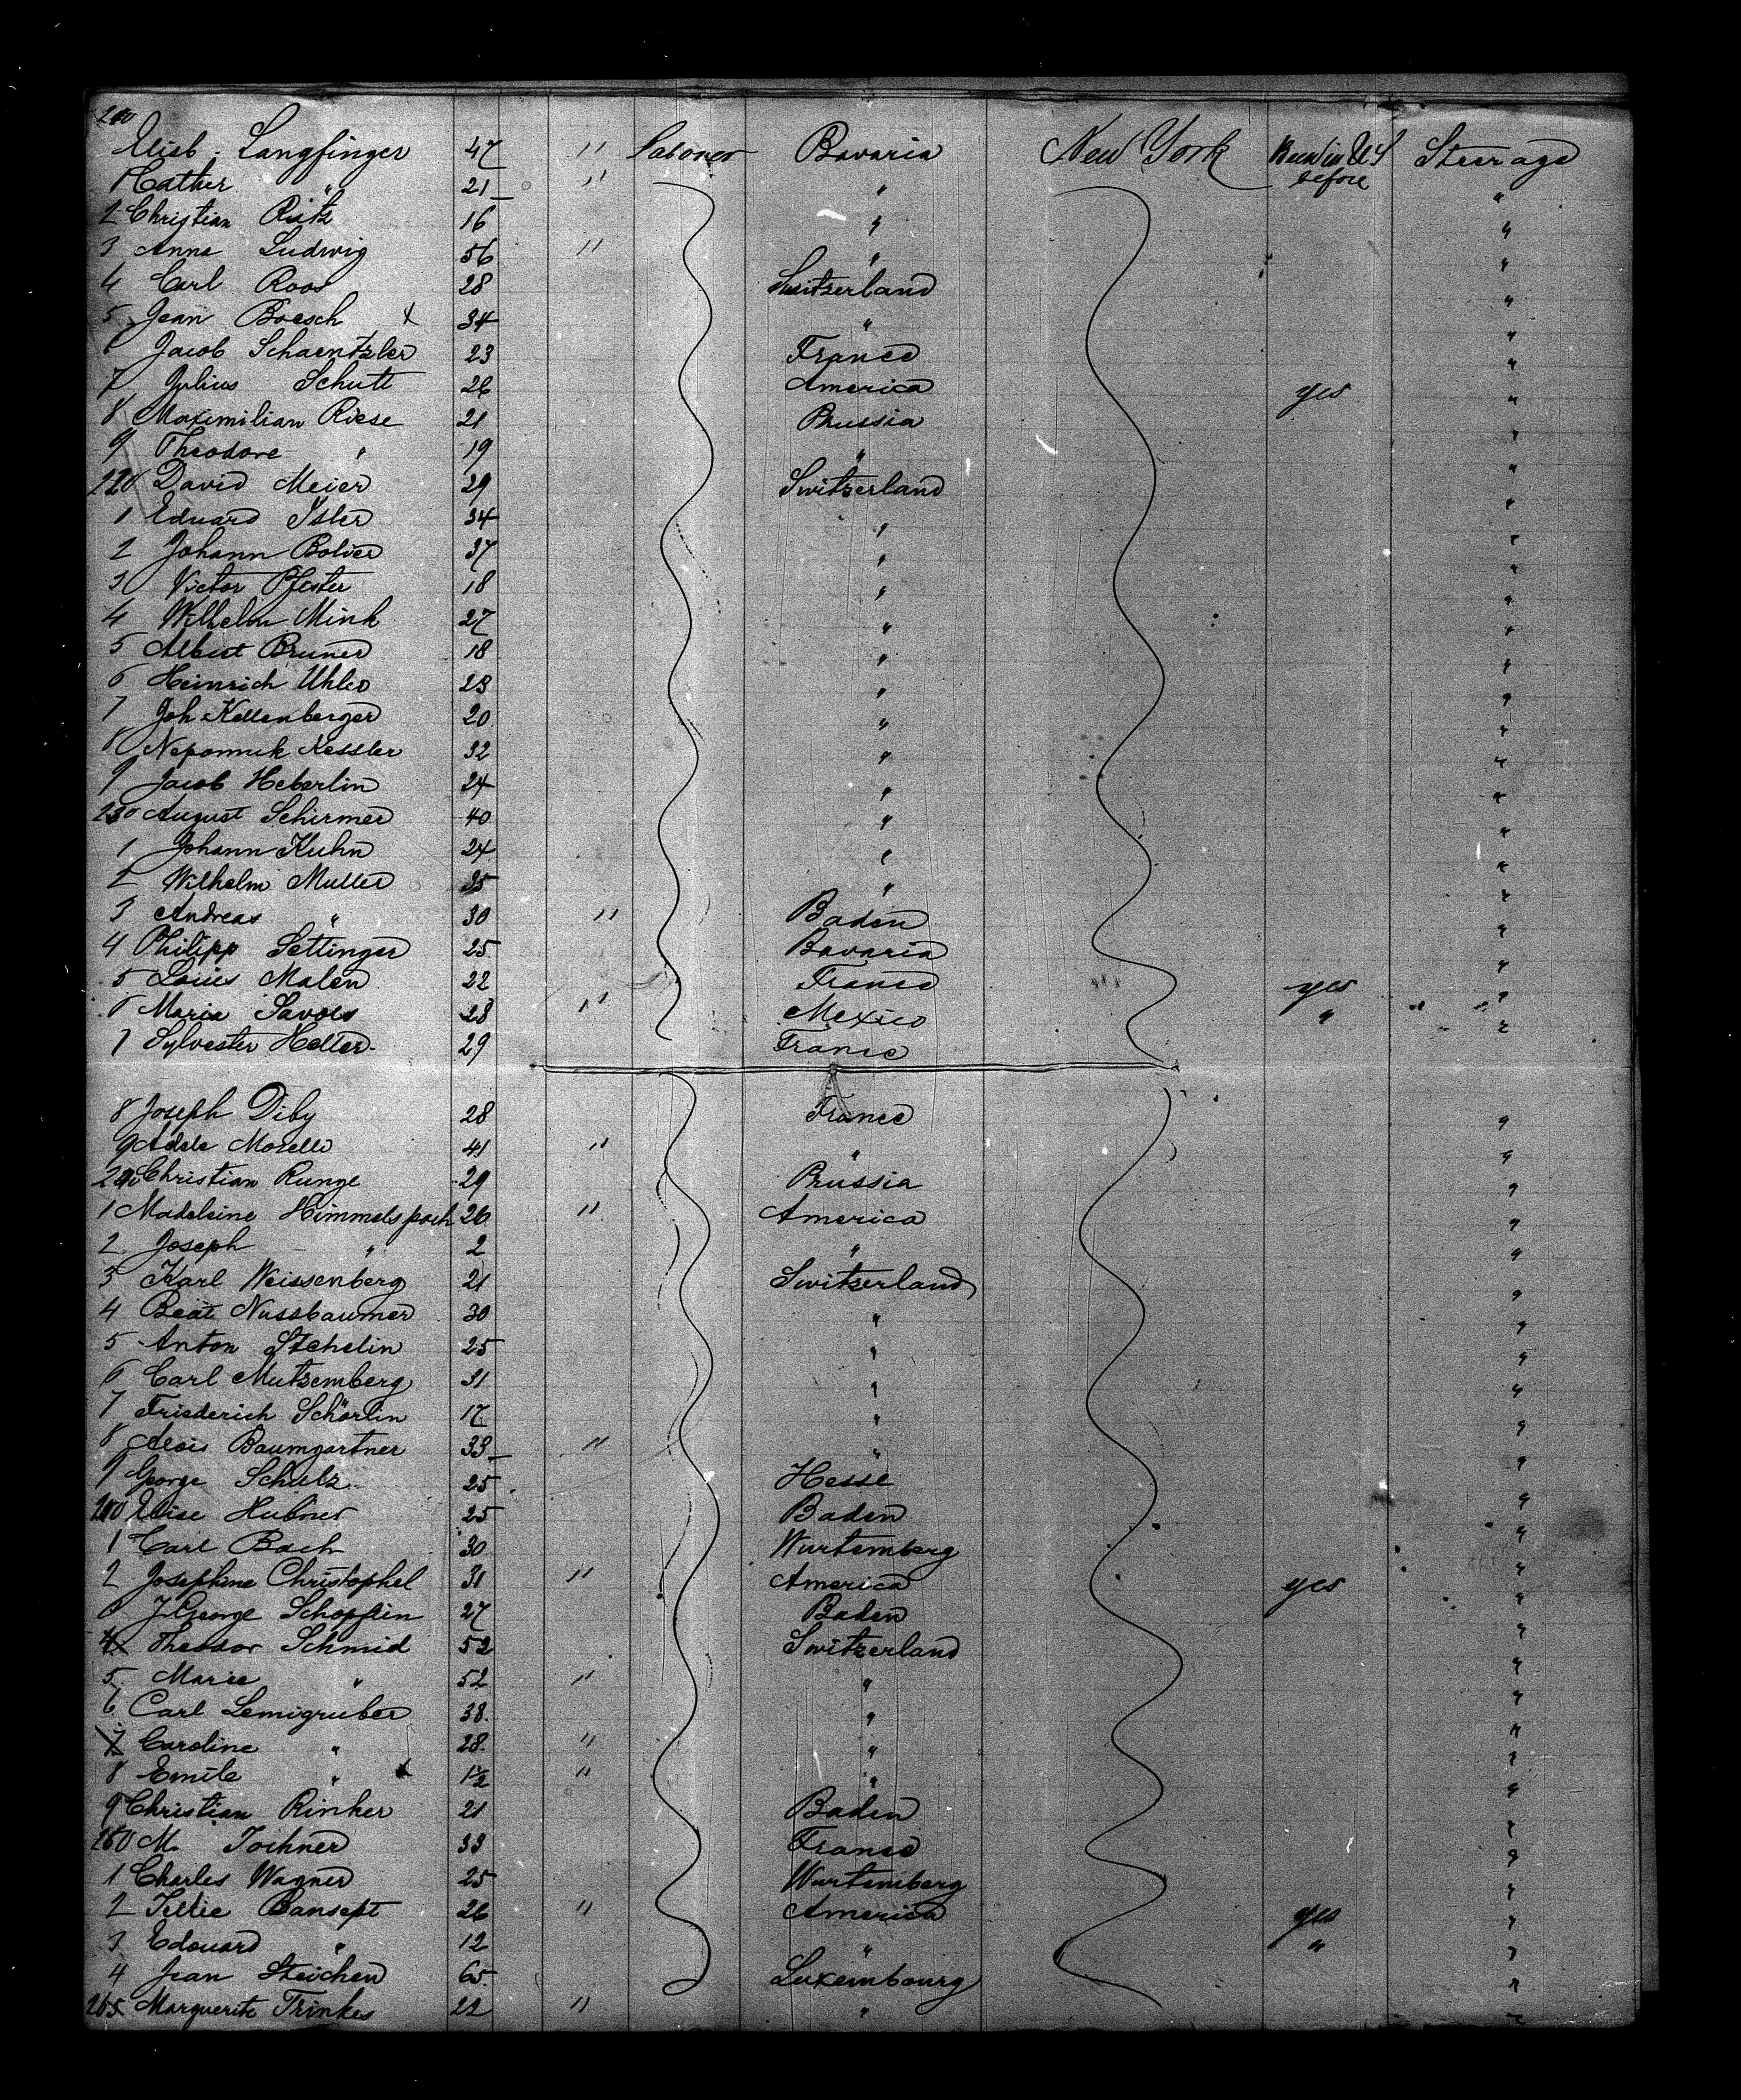 210 Elisb. Langfinger 47 " Laborer Bavaria New York Been in U S before Steerage
1 Kather " 21 " " "
2 Christian Rutz 16 " "
3 Anna Ludwig 56 " " "
4 Carl Roos 28 Switzerland "
5 Jean Boesch x 34 " "
6 Jacob Schaentzler 23 France "
7 Julius Schutt 26 America yes "
8 Maximilian Riese 21 Prussia "
9 Theodore " 19 " "
220 David Meier 29 Switzerland "
1 Eduard Isler 34 " "
2 Johann Bolier 37 " "
3 Victor Pfister 18 " "
4 Wilhelm Mink 27 " "
5 Albert Bruner 18 " "
6 Heinrich Uhler 23 " "
7 Joh Kellenberger 20 " "
8 Nepomuk Kessler 32 " "
9 Jacob Heberlin 24 " "
230 August Schirmer 40 " "
1 Johann Kuhn 24 " "
2 Wilhelm Muller 35 " "
3 Andreas " 30 " Baden "
4 Philipp Settinger 25 Bavaria "
5 Louis Malen 22 France yes "
6 Maria Savois 28 " Mexico " "
7 Sylvester Helter 29 France
8 Joseph Diby 28 France "
9 Adele Morelle 41 " " "
240 Christian Runge 29 Prussia "
1 Madeleine Himmelspach 26 " America "
2 Joseph " 2 " "
3 Karl Weissenberg 21 Switzerland "
4 Beat Nussbaumer 30 " "
5 Anton Stehelin 25 " "
6 Carl Mutzemberg 31 " "
7 Friederich Schörlin 17 " "
8 Alois Baumgartner 33 " " "
9 George Schulz 25 Hesse "
250 Elise Hubner 25 Baden "
1 Carl Bach 30 Wurtemberg "
2 Josephine Christophel 31 " America yes "
3 J. George Schopflin 27 Baden "
4 Theodor Schmid 52 Switzerland "
5 Marie " 52 " " "
6 Carl Lemigruber 38 " "
7 Caroline " 28 " " "
8 Emile " x 1 1/2 " " "
9 Christian Rinker 21 Baden "
260 M. Jochner 33 France "
1 Charles Wagner 25 Wurtemberg "
2 Tillie Bansept 26 " America yes "
3 Edouard " 12 " " "
4 Jean Steichen 65 Luxembourg "
265 Marguerite Trinkes 22 " " "